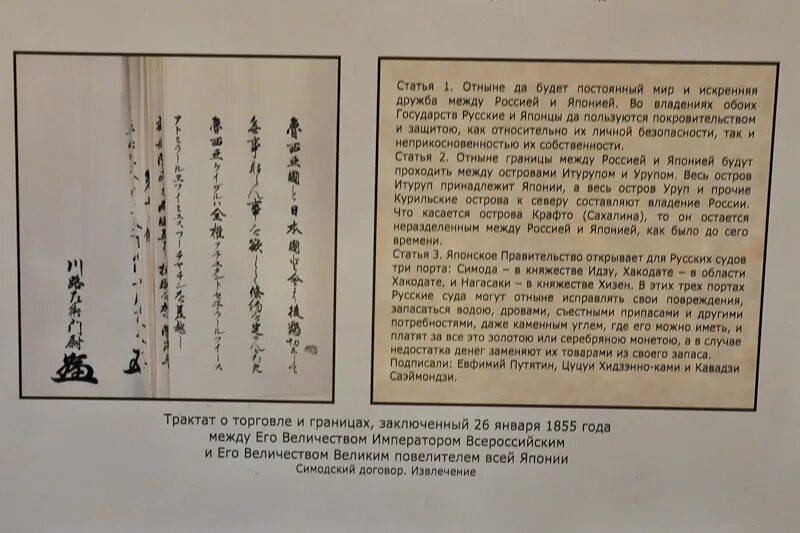 魯西亜國と日本國と今より後懇切にして
無事ならん事を欲して條約を定めんか為
魯西亜ケイヅルハ全権アヂユダントゼネラール フイース
アトミラール エフイミユス プーチヤチンを差越し
川路左衛門尉
Статья 1. Отныне да будет постоянный мир и искренняя
дружба между Россией и Японией. Во владениях обоих
Государств Русские и Японцы да пользуются покровительством
и защитою, как относительно их личной безопасности, так и
неприкосновенностью их собственности.
Статья 2. Отныне границы между Россией и Японией будут
проходить между островами Итурупом и Урупом. Весь остров
Итуруп принадлежит Японии, а весь остров Уруп и прочие
Курильские острова к северу составляют владение России.
Что касается острова Крафто (Сахалина), то он остается
неразделенным между Россией и Японией, как было до сего
времени.
Статья 3. Японское Правительство открывает для Русских судов
три порта: Симода – в княжестве Идзу, Хакодате – в области
Хакодате, и Нагасаки – в княжестве Хизен. В этих трех портах
Русские суда могут отныне исправлять свои повреждения,
запасаться водою, дровами, съестными припасами и другими
потребностями, даже каменным углем, где его можно иметь, и
платят за все это золотою или серебряною монетою, а в случае
недостатка денег заменяют их товарами из своего запаса.
Подписали: Евфимий Путятин, Цуцуи Хидзэнно-ками и Кавадзи
Саэймондзи.
Трактат о торговле и границах, заключенный 26 января 1855 года
между Его Величеством Императором Всероссийским
и Его Величеством Великим повелителем всей Японии
Симодский договор. Извлечение